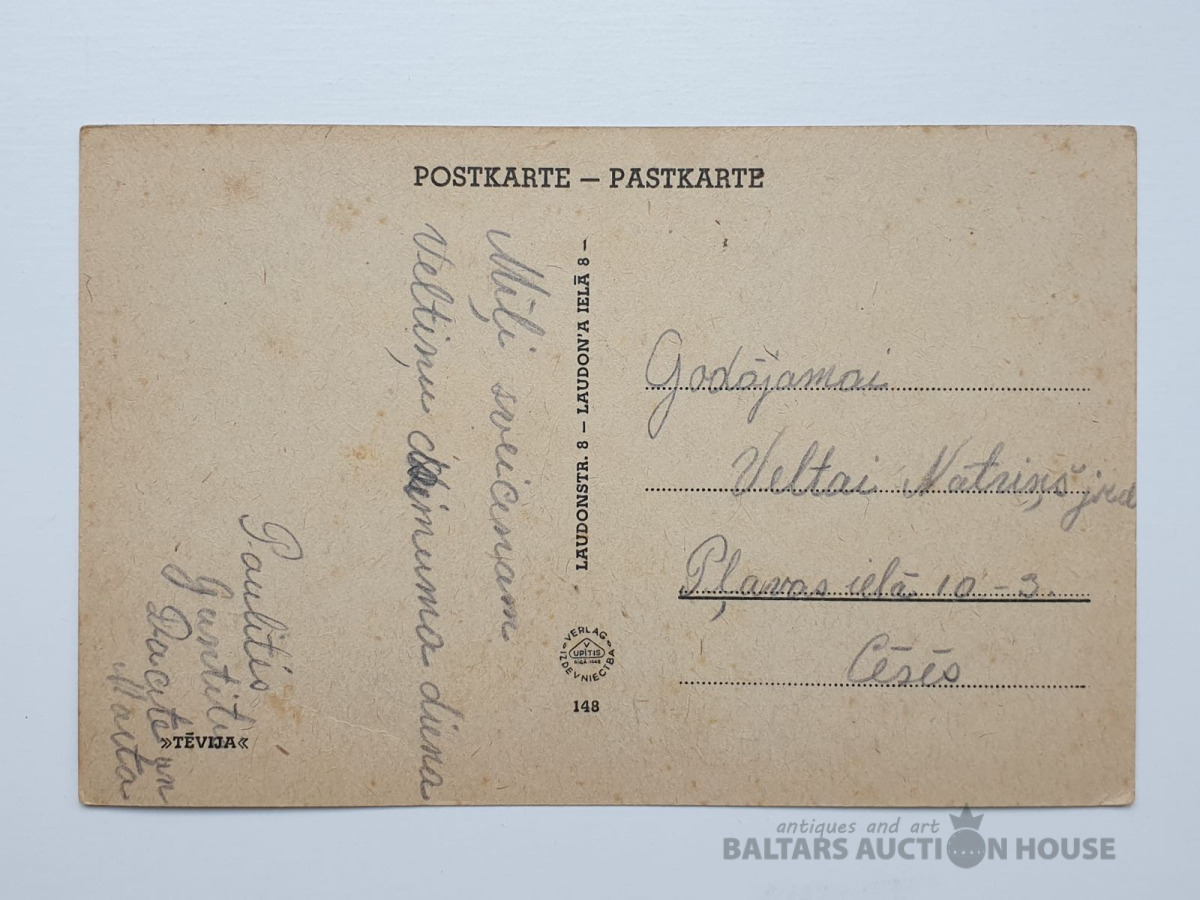 POSTKARTE – PASTKARTE
Mīļi sveicam
Veltiņu dzimuma diena
Paulītis
Guntiti
Dacite un
Marta
»TĒVIJA«
LAUDONSTR. 8 – LAUDON'A IELĀ 8 –
VERLAG
V
UPITIS
IZDEVNIECTBA
148
Godājamai
Veltai
Pļavas ielā 10 – 3.
Cēsēs
antiques and art
BALTARS AUCTION HOUSE